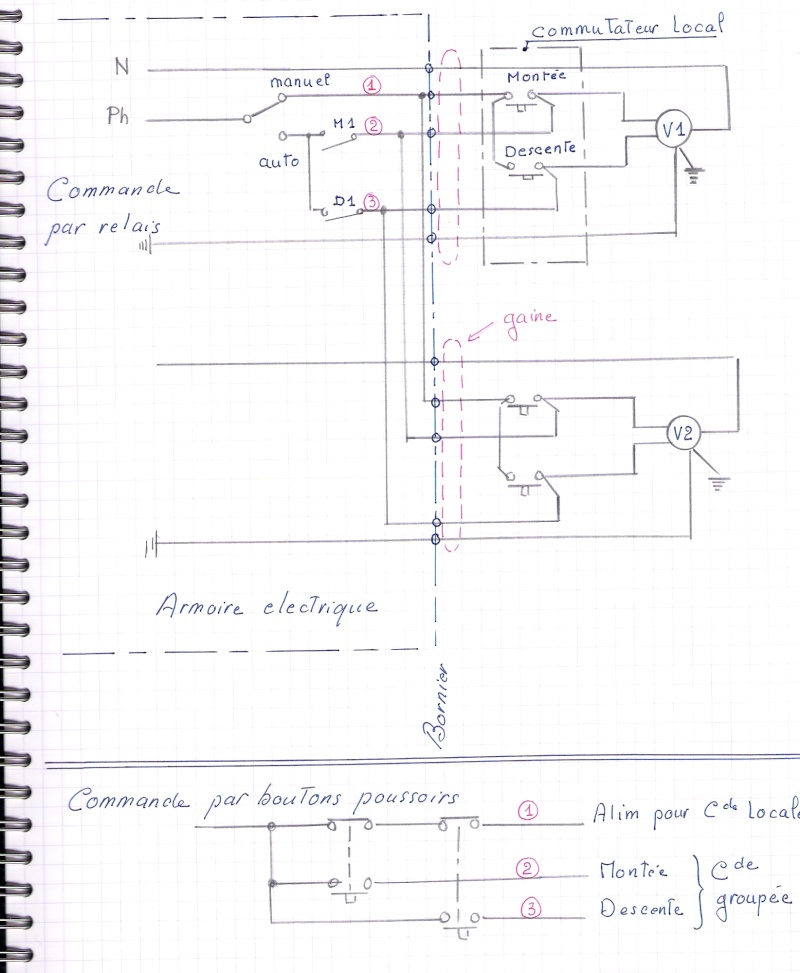 commutateur local
N
manuel
1
Montée
Ph
M1
2
V1
auto
Descente
Commande
par relais
D1
3
gaine
V2
Armoire electrique
Bornier
Commande par boutons poussoirs
1
Alim pour Cde Locale
2
Montée
Cde
groupée
3
Descente